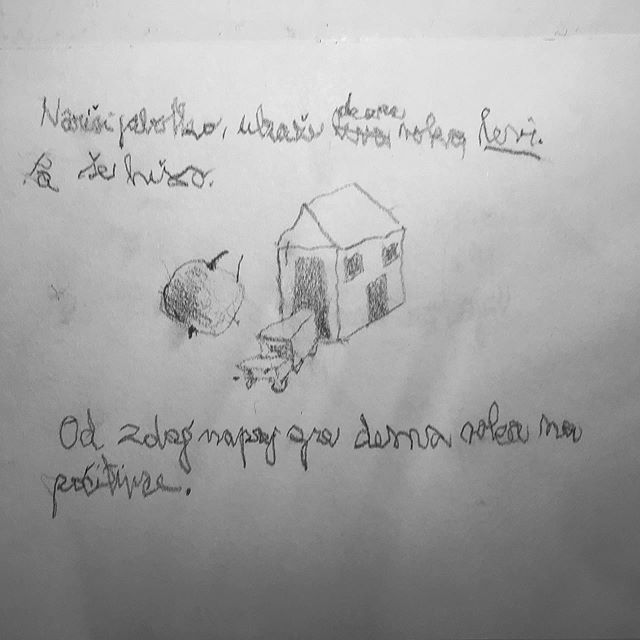 Nariši jabolko, ukaže desna roka levi.
še hišo.
Od zdaj naprej gre desna roka na
počitnice.